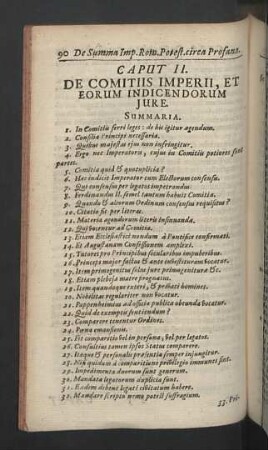 90 De Summa Imp. Rom. Potest. circa Profana.
CAPUT II.
DE COMITIIS IMPERII, ET
EORUM INDICENDORUM
JURE.
SUMMARIA.
1. In Comitiis ferri leges: de his igitur agendum.
2. Consilia Principi necessaria.
3. Quibus majestas ejus non infringitur.
4. Ergo nec Imperatoris, cujus in Comitiis potiores sunt
partes.
5. Comitia quid & quotuplicia?
6. Hæc indicit Imperator cum Electorum consensu.
7. Qui consensus per legatos impetrandus.
8. Ferdinandus II. semel tantum habuit Comitia.
9. Quando & aliorum Ordinum consensus requisitus?
10. Citatio fit per literas.
11. Materia agendorum literis insinuanda.
12. Qui vocentur ad Comitia.
13. Etiam Ecclesiastici nondum à Pontifice confirmati.
14. Et Augustanam Confessionem amplexi.
15. Tutores pro Principibus sæcularibus impuberibus.
16. Princeps major factus & ante investituram vocatur.
17. Item primogenitus solus jure primogenituræ &c.
18. Etiam plebeja matre prognatus.
19. Item quandoque exteri, & probati homines.
20. Nobilitas regulariter non vocatur.
21. Pappenheimius ad officia publica obeunda vocatur.
22. Quid de exemptis sentiendum?
23. Comparere tenentur Ordines.
24. Pœna emansionis.
25. Fit comparitio vel in persona, vel per legatos.
26. Consultius tamen ipsos Status comparere.
27. Itaque & personalis præsentia semper injungitur.
28. Nisi quidam à comparitione privilegio immunes sint.
29. Impedimenta duorum sunt generum.
30. Mandata legatorum duplicia sunt.
31. Eodem debent legati obsivatum habere.
32. Mandare scripto nemo potest suffragium.
33. Pri-